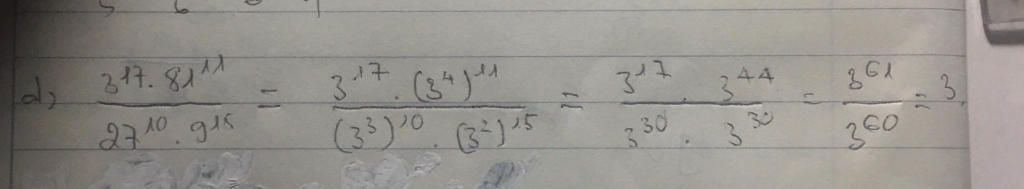 d) \frac{3^{17} \cdot 81^{11}}{27^{10} \cdot 9^{15}} = \frac{3^{17} \cdot (3^4)^{11}}{(3^3)^{10} \cdot (3^2)^{15}} = \frac{3^{17} \cdot 3^{44}}{3^{30} \cdot 3^{30}} = \frac{3^{61}}{3^{60}} = 3.